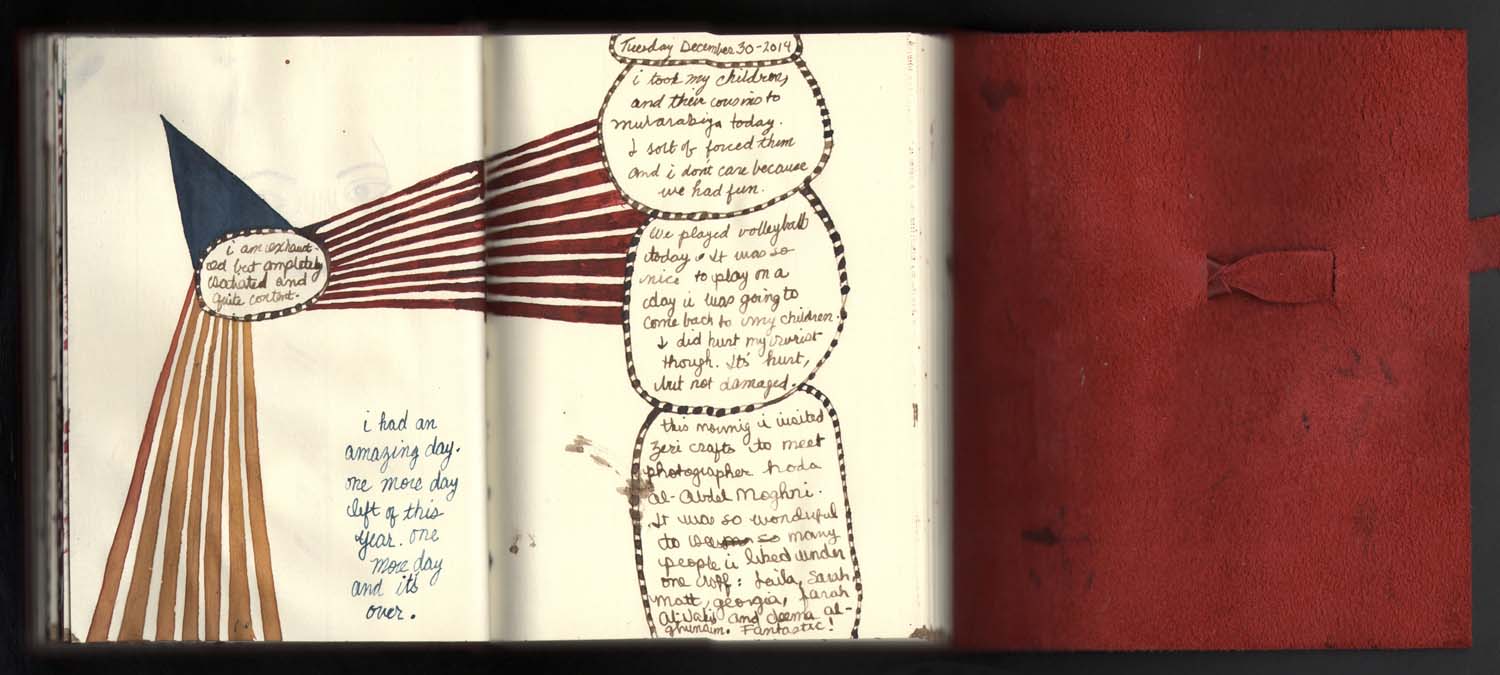 i am exhaust-
ed but completely
and
quite content.
i had an
amazing day.
one more day
left of this
year. one
more day
and its
over.
Tuesday December 30-2014
i took my children,
and their cousins to
mubarakiya today.
I sort of forced them
and i don't care because
we had fun.
We played volleyball
today. It was so
nice to play on a
day i was going to
come back to my children.
I did hurt my wrist
though. Its' hurt,
but not damaged.
this mornig i visited
Zeri crafts to meet
photographer hoda
al-Abdel Moghni.
It was so wonderful
to so many
people i liked under
one roof: Leila, Sarah,
Matt, georgia, farah
and deema al-
ghunaim. Fantastic!